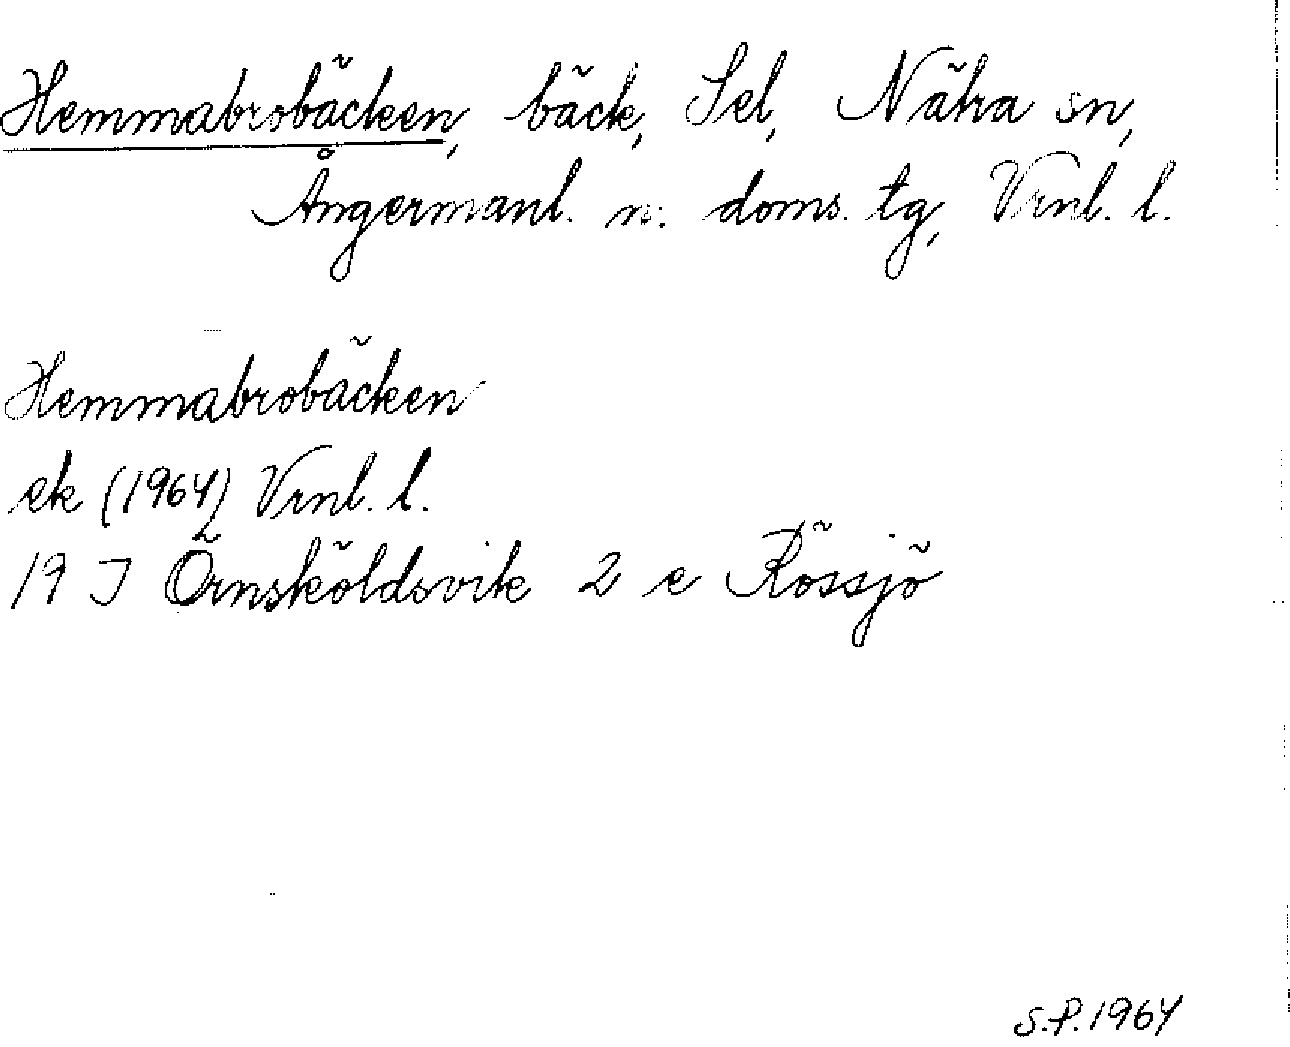 Hemmabrobäcken, bäck, Sel, Nätra sn,
Ångermanl. n. doms. tg, Vrnl. l.
Hemmabrobäcken
ek (1964) Vrnl. l.
19 J Örnsköldsvik 2 e Rössjö
S.P. 1964